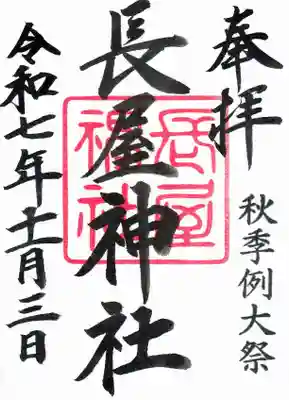 奉拝
秋季例大祭
長屋神社
長屋神社
令和七年十一月三日